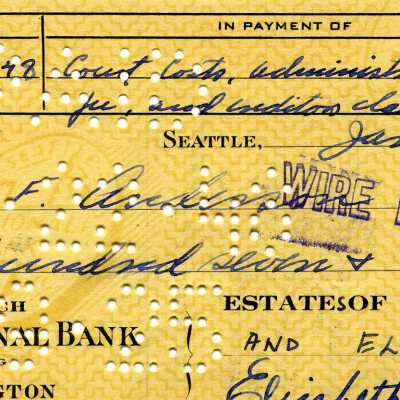 IN PAYMENT OF
48 Court Costs, administ
fee, and creditors cla
SEATTLE, Jan
F. Anders
WIRE
hundred seven &
CH ESTATES OF
NAL BANK AND EL
NGTON Elizabeth